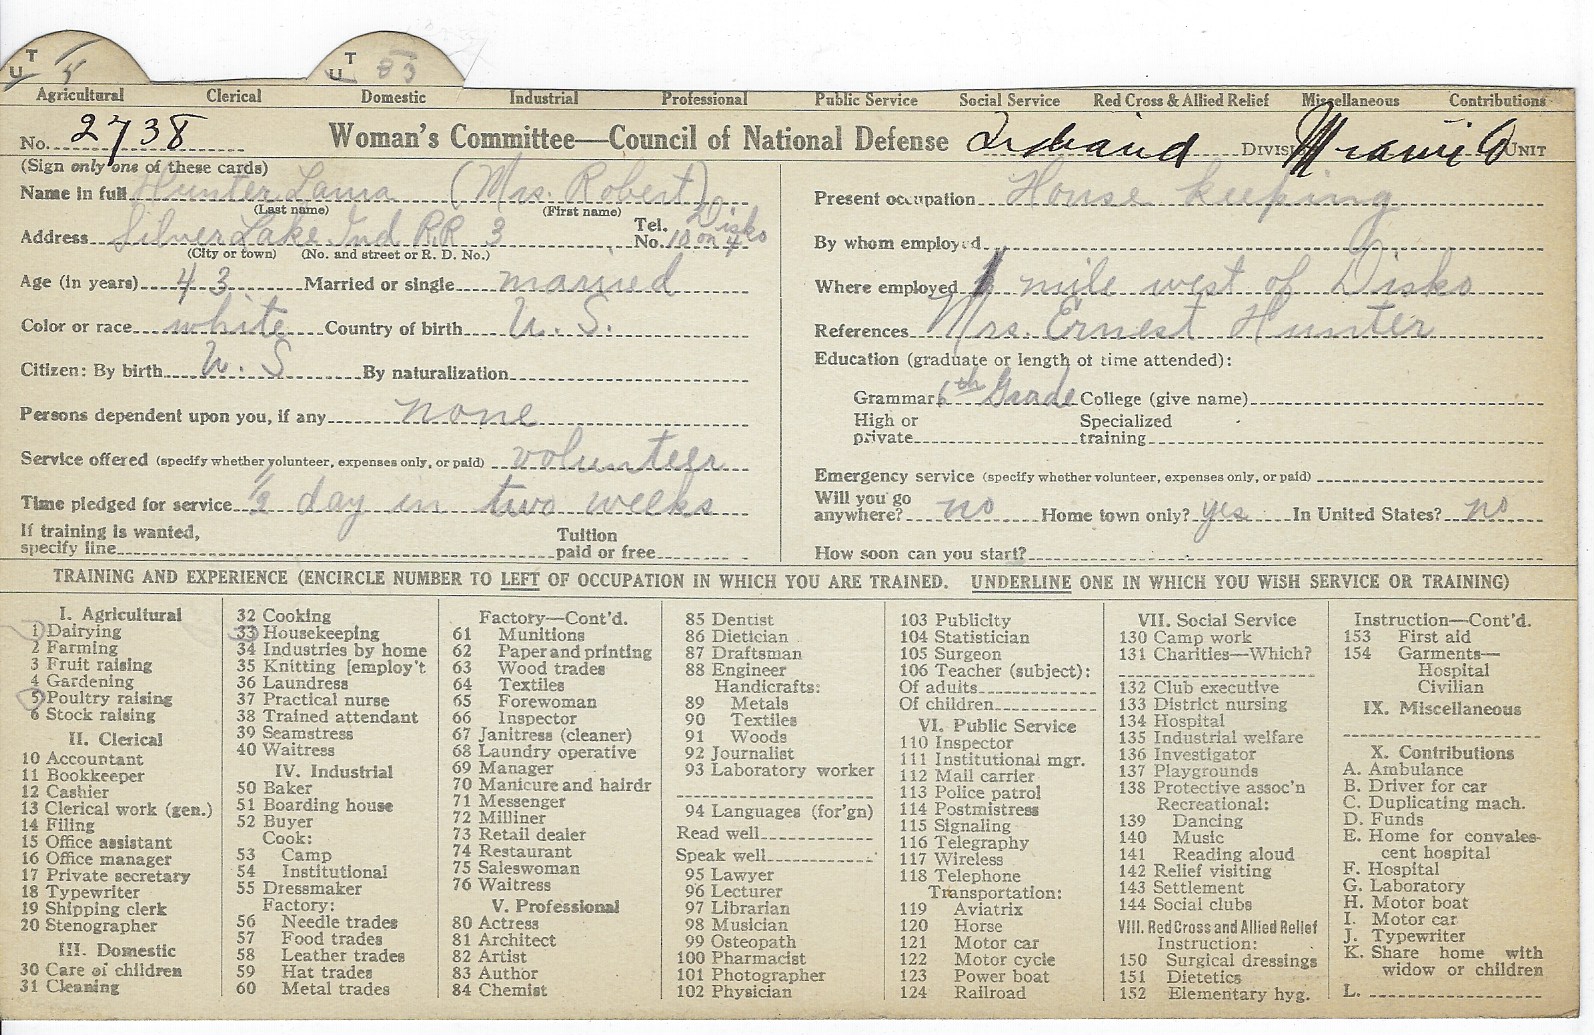 U T 5
U T 83
Agricultural Clerical Domestic Industrial Professional Public Service Social Service Red Cross & Allied Relief Miscellaneous Contributions
No. 2738 Woman's Committee—Council of National Defense Indiana DIVISION Miami Co UNIT
(Sign only one of these cards)
Name in full Hunter Laura (Mrs. Robert)
(Last name) (First name)
Address Silver Lake Ind R.R 3 Tel. No. Disko 10 on 4
(City or town) (No. and street or R. D. No.)
Age (in years) 43 Married or single married
Color or race white Country of birth U. S.
Citizen: By birth U. S By naturalization
Persons dependent upon you, if any none
Service offered (specify whether volunteer, expenses only, or paid) volunteer
Time pledged for service 1/2 day in two weeks
If training is wanted, specify line Tuition paid or free
Present occupation House keeping
By whom employed
Where employed 1 mile west of Disko
References Mrs. Ernest Hunter
Education (graduate or length of time attended):
Grammar 6th Grade College (give name)
High or private Specialized training
Emergency service (specify whether volunteer, expenses only, or paid)
Will you go anywhere? no Home town only? yes In United States? no
How soon can you start?
TRAINING AND EXPERIENCE (ENCIRCLE NUMBER TO LEFT OF OCCUPATION IN WHICH YOU ARE TRAINED. UNDERLINE ONE IN WHICH YOU WISH SERVICE OR TRAINING)
I. Agricultural
1 Dairying
2 Farming
3 Fruit raising
4 Gardening
5 Poultry raising
6 Stock raising
II. Clerical
10 Accountant
11 Bookkeeper
12 Cashier
13 Clerical work (gen.)
14 Filing
15 Office assistant
16 Office manager
17 Private secretary
18 Typewriter
19 Shipping clerk
20 Stenographer
III. Domestic
30 Care of children
31 Cleaning
32 Cooking
33 Housekeeping
34 Industries by home
35 Knitting [employ't
36 Laundress
37 Practical nurse
38 Trained attendant
39 Seamstress
40 Waitress
IV. Industrial
50 Baker
51 Boarding house
52 Buyer
Cook:
53 Camp
54 Institutional
55 Dressmaker
Factory:
56 Needle trades
57 Food trades
58 Leather trades
59 Hat trades
60 Metal trades
Factory—Cont'd.
61 Munitions
62 Paper and printing
63 Wood trades
64 Textiles
65 Forewoman
66 Inspector
67 Janitress (cleaner)
68 Laundry operative
69 Manager
70 Manicure and hairdr
71 Messenger
72 Milliner
73 Retail dealer
74 Restaurant
75 Saleswoman
76 Waitress
V. Professional
80 Actress
81 Architect
82 Artist
83 Author
84 Chemist
85 Dentist
86 Dietician
87 Draftsman
88 Engineer
Handicrafts:
89 Metals
90 Textiles
91 Woods
92 Journalist
93 Laboratory worker
94 Languages (for'gn)
Read well
Speak well
95 Lawyer
96 Lecturer
97 Librarian
98 Musician
99 Osteopath
100 Pharmacist
101 Photographer
102 Physician
103 Publicity
104 Statistician
105 Surgeon
106 Teacher (subject):
Of adults
Of children
VI. Public Service
110 Inspector
111 Institutional mgr.
112 Mail carrier
113 Police patrol
114 Postmistress
115 Signaling
116 Telegraphy
117 Wireless
118 Telephone
Transportation:
119 Aviatrix
120 Horse
121 Motor car
122 Motor cycle
123 Power boat
124 Railroad
VII. Social Service
130 Camp work
131 Charities—Which?
132 Club executive
133 District nursing
134 Hospital
135 Industrial welfare
136 Investigator
137 Playgrounds
138 Protective assoc'n
Recreational:
139 Dancing
140 Music
141 Reading aloud
142 Relief visiting
143 Settlement
144 Social clubs
VIII. Red Cross and Allied Relief
Instruction:
150 Surgical dressings
151 Dietetics
152 Elementary hyg.
Instruction—Cont'd.
153 First aid
154 Garments—
Hospital
Civilian
IX. Miscellaneous
X. Contributions
A. Ambulance
B. Driver for car
C. Duplicating mach.
D. Funds
E. Home for convales-
cent hospital
F. Hospital
G. Laboratory
H. Motor boat
I. Motor car
J. Typewriter
K. Share home with
widow or children
L.